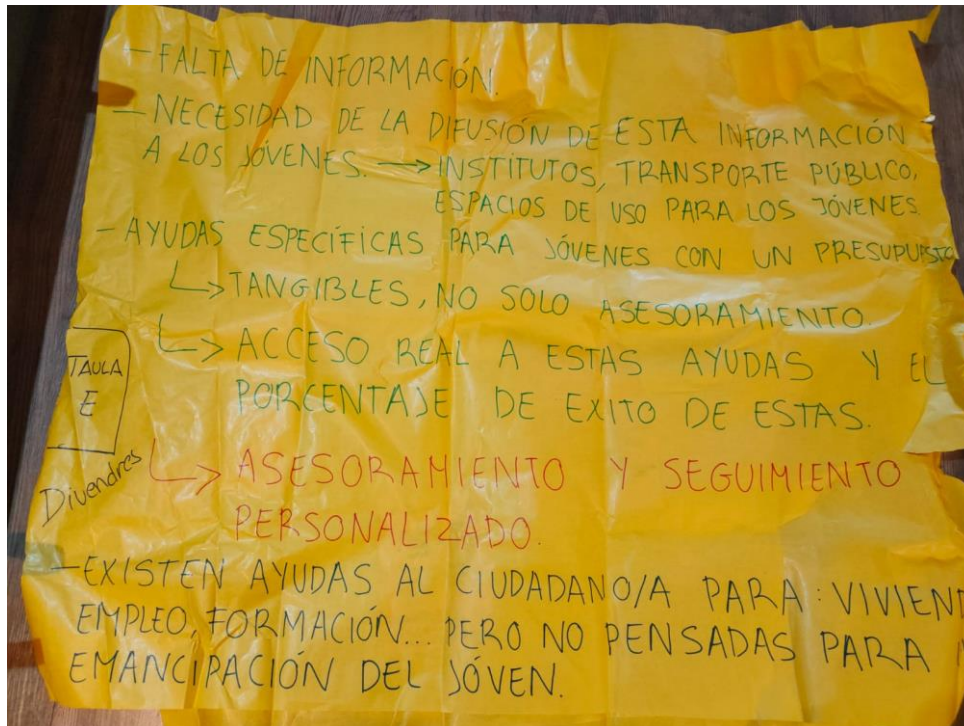 - FALTA DE INFORMACIÓN.
- NECESIDAD DE LA DIFUSIÓN DE ESTA INFORMACIÓN
A LOS JÓVENES. → INSTITUTOS, TRANSPORTE PÚBLICO,
ESPACIOS DE USO PARA LOS JÓVENES.
- AYUDAS ESPECÍFICAS PARA JÓVENES CON UN PRESUPUESTO
↳ TANGIBLES, NO SOLO ASESORAMIENTO.
↳ ACCESO REAL A ESTAS AYUDAS Y EL
PORCENTAJE DE EXITO DE ESTAS.
TAULA
E
Divendres
↳ ASESORAMIENTO Y SEGUIMIENTO
PERSONALIZADO.
- EXISTEN AYUDAS AL CIUDADANO/A PARA: VIVIEN
EMPLEO, FORMACIÓN... PERO NO PENSADAS PARA
EMANCIPACIÓN DEL JÓVEN.